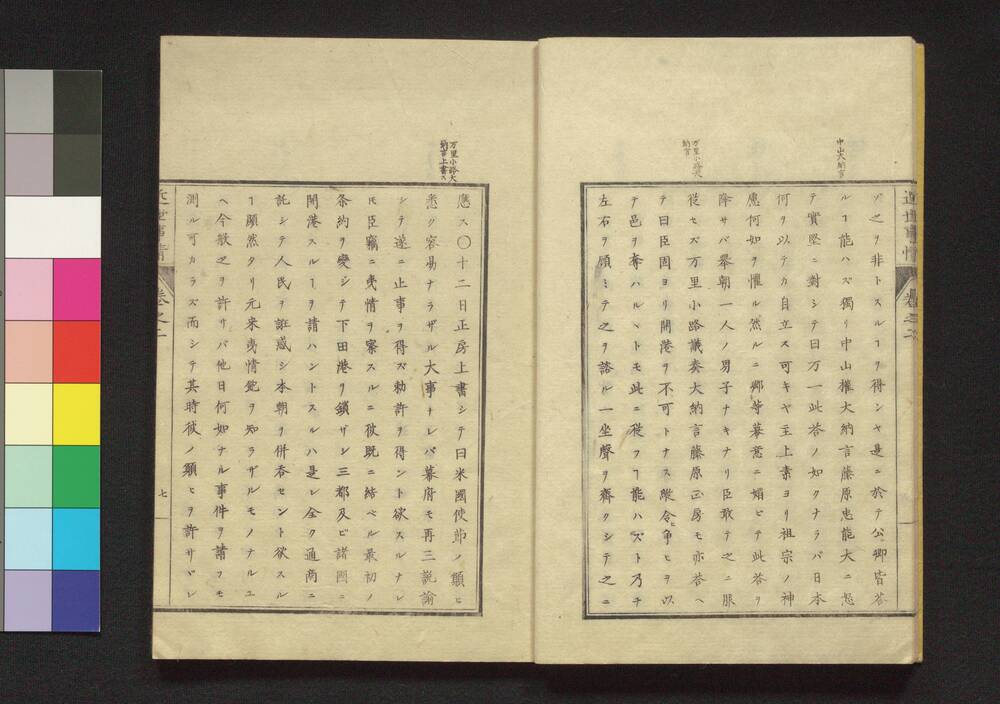 中山大納言
万里小路大
納言
近世事情
卷之二
バ之ヲ非トスルヿヲ得ンヤ是ニ於テ公卿皆答
ルヿ能ハズ獨リ中山權大納言藤原忠能大ニ怒
テ實堅ニ對シテ曰万一此答ノ如クナラバ日本
何ヲ以テカ自立ス可キヤ主上素ヨリ祖宗ノ神
慮何如ヲ懼ル然ルニ卿等幕意ニ媚ビテ此答ヲ
降サバ舉朝一人ノ男子ナキナリ臣敢テ之ニ服
從セズ万里小路議奏大納言藤原正房モ亦答ヘ
テ曰臣固ヨリ開港ヲ不可トナス縱令ヒ争ヒヲ以
テ邑ヲ奪ハルヽトモ此ニ從フヿ能ハズト乃チ
左右ヲ顧ミテ之ヲ諮ル一坐聲ヲ齊クシテ之ニ
万里小路大
納言上書ス
應ス〇十二日正房上書シテ曰米國使節ノ願ヒ
悉ク容易ナラザル大事ナレバ幕府モ再三說諭
シテ遂ニ止事ヲ得ズ勅許ヲ得ント欲スルナレ
𪜈臣竊ニ夷情ヲ察スルニ彼既ニ結ベル最初ノ
条約ヲ變シテ下田港ヲ鎖ザシ三都及ビ諸國ニ
開港スルヿヲ請ハントスルハ是レ全ク通商ニ
託シテ人民ヲ誑惑シ本朝ヲ併吞セント欲スル
ヿ顯然タリ元来夷情飽ヲ知ラザルモノナルユ
ヘ今般之ヲ許サバ他日何如ナル事件ヲ請フモ
測ル可カラズ而シテ其時彼ノ願ヒヲ許サヾレ
近世事情
卷之二
七